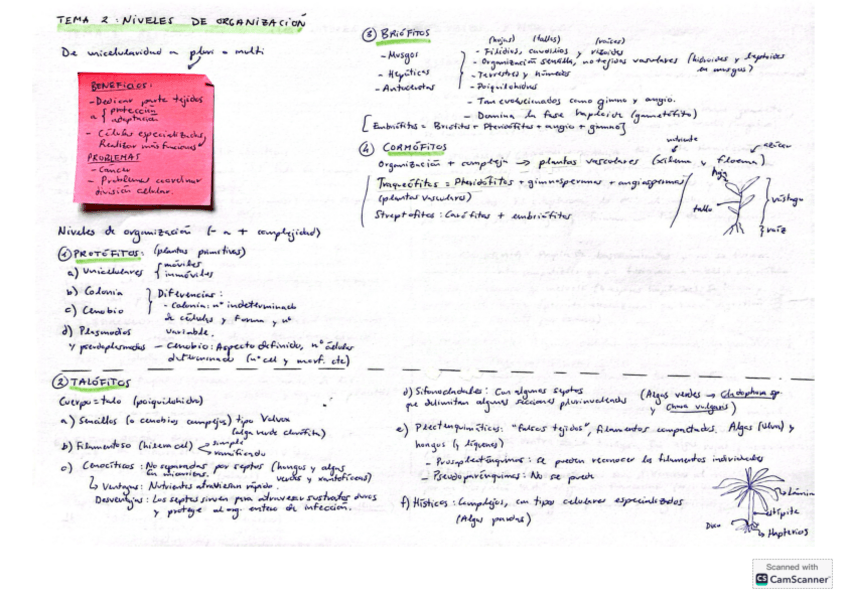 TEMA 2: NIVELES DE ORGANIZACIÓN
De unicelularidad a pluri o multi
BENEFICIOS:
- Dedicar parte tejidos
a { protección
adaptación
- Células especializadas,
Realizar más funciones
PROBLEMAS
- Cáncer
- Problemas coordinar
división celular.
Niveles de organización (- a + complejidad)
① PROTÓFITOS: (plantas primitivas)
a) Unicelulares { móviles
inmóviles
b) Colonia
c) Cenobio
d) Plasmodios
y pseudoplasmodios
Diferencias:
- Colonia: nº indeterminado
de células y forma y nº
variable.
- Cenobio: Aspecto definido, nº células
determinado (nº cel y morf. etc)
② TALÓFITOS
Cuerpo = talo (poiquilohidro)
a) Sencillos (o cenobios complejos) tipo Volvox
(alga verde clorófita)
b) Filamentoso (hilera cel) simple
ramificado
c) Cenocíticos: No separados por septos (hongos y algas
verdes y xantofíceas)
↳ Ventajas: Nutrientes atraviesan rápido.
Desventajas: Los septos sirven para atravesar sustratos duros
y protege al org. entero de infección.
③ BRIÓFITOS
- Musgos
- Hepáticas
- Antocerotas
(hojas) (tallos) (raíces)
- Filidios, caulidios y rizoides
- Organización sencilla, no tejidos vasculares (hidroides y leptoides
en musgos)
- Terrestres y húmedos
- Poiquilohidros
- Tan evolucionados como gimno y angio.
- Domina la fase haploide (gametófito)
[Embriófitos = Briófitos + Pteridófitos + angio + gimno]
④ CORMÓFITOS
Organización + compleja → plantas vasculares (xilema y floema)
Traqueófitos = Pteridófitos + gimnospermas + angiospermas
(plantas vasculares)
Streptofitos: Carófitos + embriófitos
hoja
tallo
vástago
raíz
d) Sifonocladales: Con algunos septos
que delimitan algunas secciones plurinucleadas
(Algas verdes → Cladophora sp
y Chara vulgaris)
e) Plectenquimáticos: "falsos tejidos", filamentos compactados. Algas (Ulva) y
hongos (y líquenes)
- Prosoplecténquimas: se pueden reconocer los filamentos individuales
- Pseudoparénquimas: No se puede
f) Hísticos: Complejos, con tipos celulares especializados
(Algas pardas)
Lámina
estípite
Hapterios
Scanned with
CS CamScanner